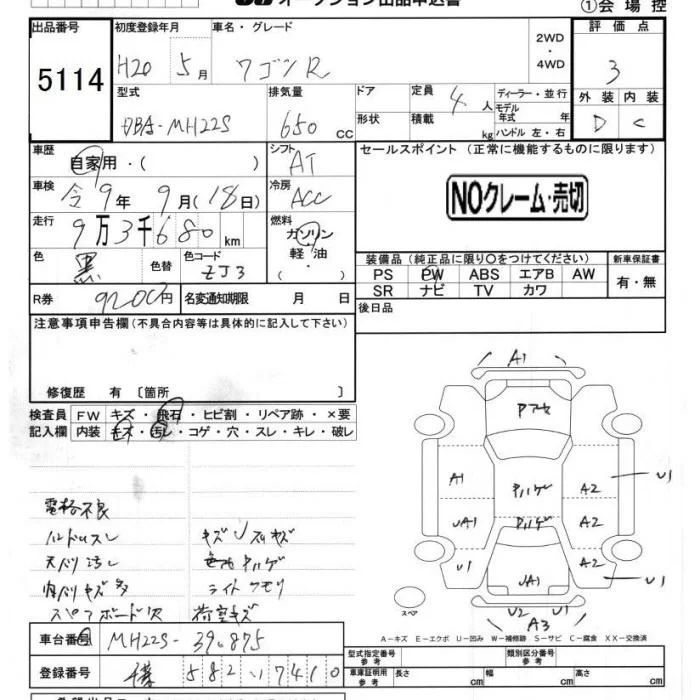 オークション出品申込書
①会場控
出品番号 初度登録年月 車名・グレード 2WD・4WD 評価点
5114 H20年 5月 ワゴンR 3
型式 排気量 ドア 定員 4人 ディーラー・並行 外装 内装
DBA-MH22S 650cc 形状 積載 kg モデル年式 年 ハンドル 左・右 D C
車歴 自家用・( ) シフト AT セールスポイント (正常に機能するものに限ります)
車検 令9年 9月(18日) 冷房 ACC NOクレーム・売切
走行 9万3千680km 燃料 ガソリン・軽油・( )
色 黒 色替 色コード ZJ3 装備品(純正品に限り○をつけてください) 新車保証書
PS PW ABS エアB AW 有・無
SR ナビ TV カワ
R券 9200円 名変通知期限 月 日 後日品
注意事項申告欄(不具合内容等は具体的に記入して下さい)
修復歴 有 〔箇所 〕
検査員 FW キズ・飛石・ヒビ割・リペア跡・×要
記入欄 内装 キズ・汚レ・コゲ・穴・スレ・キレ・破レ
電格不良
ハンドルスレ キズUスリキズ
天バリ汚レ
内バリキズ多 ライトクモリ
荷室キズ
A1
A1 A2 U1
UA1 A2
U1 UA1 U1
U2 U1
A3
スペア
A−キズ E−エクボ U−凹み W−補修跡 S−サビ C−腐食 XX−交換済
車台番号 MH22S-390875 型式指定番号 参考 類別区分番号 参考
登録番号 582 い 7410 車庫証明用 参考 長さ cm 幅 cm 高さ cm